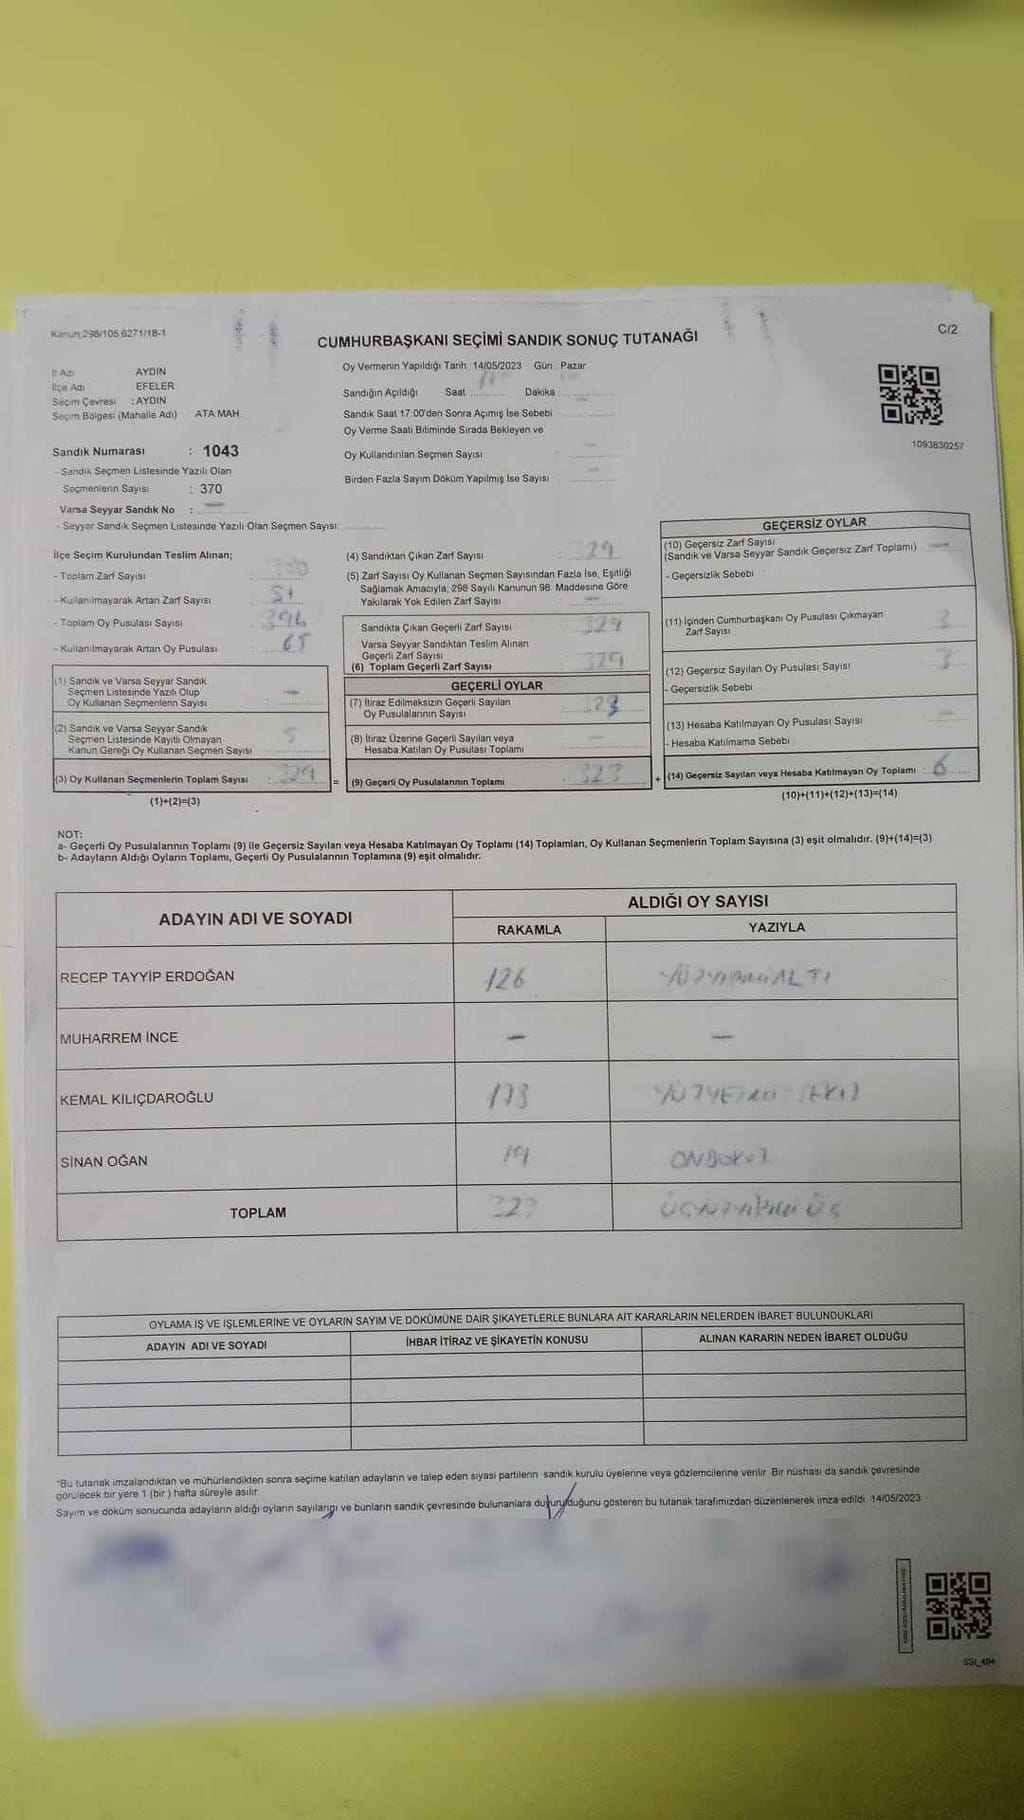 Kanun;298/105,6271/18-1
C/2
CUMHURBAŞKANI SEÇİMİ SANDIK SONUÇ TUTANAĞI
İl Adı AYDIN
İlçe Adı EFELER
Seçim Çevresi : AYDIN
Seçim Bölgesi (Mahalle Adı) ATA MAH.
Sandık Numarası : 1043
- Sandık Seçmen Listesinde Yazılı Olan
Seçmenlerin Sayısı : 370
Varsa Seyyar Sandık No : —
- Seyyar Sandık Seçmen Listesinde Yazılı Olan Seçmen Sayısı:
Oy Vermenin Yapıldığı Tarih :14/05/2023 Gün : Pazar
Sandığın Açıldığı Saat Dakika
Sandık Saat 17:00'den Sonra Açımış İse Sebebi
Oy Verme Saati Bitiminde Sırada Bekleyen ve
Oy Kullandırılan Seçmen Sayısı
Birden Fazla Sayım Döküm Yapılmış İse Sayısı
1093830257
İlçe Seçim Kurulundan Teslim Alınan;
- Toplam Zarf Sayısı : 380
- Kullanılmayarak Artan Zarf Sayısı : 51
- Toplam Oy Pusulası Sayısı : 394
- Kullanılmayarak Artan Oy Pusulası : 65
(1) Sandık ve Varsa Seyyar Sandık
Seçmen Listesinde Yazılı Olup
Oy Kullanan Seçmenlerin Sayısı : —
(2) Sandık ve Varsa Seyyar Sandık
Seçmen Listesinde Kayıtlı Olmayan
Kanun Gereği Oy Kullanan Seçmen Sayısı : 5
(3) Oy Kullanan Seçmenlerin Toplam Sayısı : 329 =
(1)+(2)=(3)
(4) Sandıktan Çıkan Zarf Sayısı : 329
(5) Zarf Sayısı Oy Kullanan Seçmen Sayısından Fazla İse, Eşitliği
Sağlamak Amacıyla; 298 Sayılı Kanunun 98. Maddesine Göre
Yakılarak Yok Edilen Zarf Sayısı : —
Sandıkta Çıkan Geçerli Zarf Sayısı : 329
Varsa Seyyar Sandıktan Teslim Alınan
Geçerli Zarf Sayısı
(6) Toplam Geçerli Zarf Sayısı : 329
GEÇERLİ OYLAR
(7) İtiraz Edilmeksizin Geçerli Sayılan
Oy Pusulalarının Sayısı : 323
(8) İtiraz Üzerine Geçerli Sayılan veya
Hesaba Katılan Oy Pusulası Toplamı : —
(9) Geçerli Oy Pusulalarının Toplamı : 323 +
GEÇERSİZ OYLAR
(10) Geçersiz Zarf Sayısı
(Sandık ve Varsa Seyyar Sandık Geçersiz Zarf Toplamı) —
- Geçersizlik Sebebi :
(11) İçinden Cumhurbaşkanı Oy Pusulası Çıkmayan
Zarf Sayısı : 3
(12) Geçersiz Sayılan Oy Pusulası Sayısı : 3
- Geçersizlik Sebebi
(13) Hesaba Katılmayan Oy Pusulası Sayısı : —
- Hesaba Katılmama Sebebi :
(14) Geçersiz Sayılan veya Hesaba Katılmayan Oy Toplamı : 6
(10)+(11)+(12)+(13)=(14)
NOT:
a- Geçerli Oy Pusulalarının Toplamı (9) ile Geçersiz Sayılan veya Hesaba Katılmayan Oy Toplamı (14) Toplamları, Oy Kullanan Seçmenlerin Toplam Sayısına (3) eşit olmalıdır. (9)+(14)=(3)
b- Adayların Aldığı Oyların Toplamı, Geçerli Oy Pusulalarının Toplamına (9) eşit olmalıdır.
ADAYIN ADI VE SOYADI
ALDIĞI OY SAYISI
RAKAMLA YAZIYLA
RECEP TAYYİP ERDOĞAN 126 YÜZYİRMİALTI
MUHARREM İNCE — —
KEMAL KILIÇDAROĞLU 178 YÜZYETMİŞSEKİZ
SİNAN OĞAN 19 ONDOKUZ
TOPLAM 323 ÜÇYÜZYİRMİ ÜÇ
OYLAMA İŞ VE İŞLEMLERİNE VE OYLARIN SAYIM VE DÖKÜMÜNE DAİR ŞİKAYETLERLE BUNLARA AİT KARARLARIN NELERDEN İBARET BULUNDUKLARI
ADAYIN ADI VE SOYADI İHBAR İTİRAZ VE ŞİKAYETİN KONUSU ALINAN KARARIN NEDEN İBARET OLDUĞU
*Bu tutanak imzalandıktan ve mühürlendikten sonra seçime katılan adayların ve talep eden siyasi partilerin sandık kurulu üyelerine veya gözlemcilerine verilir. Bir nüshası da sandık çevresinde
görülecek bir yere 1 (bir) hafta süreyle asılır.
Sayım ve döküm sonucunda adayların aldığı oyların sayılarını ve bunların sandık çevresinde bulunanlara duyurulduğunu gösteren bu tutanak tarafımızdan düzenlenerek imza edildi. 14/05/2023
SSI_404